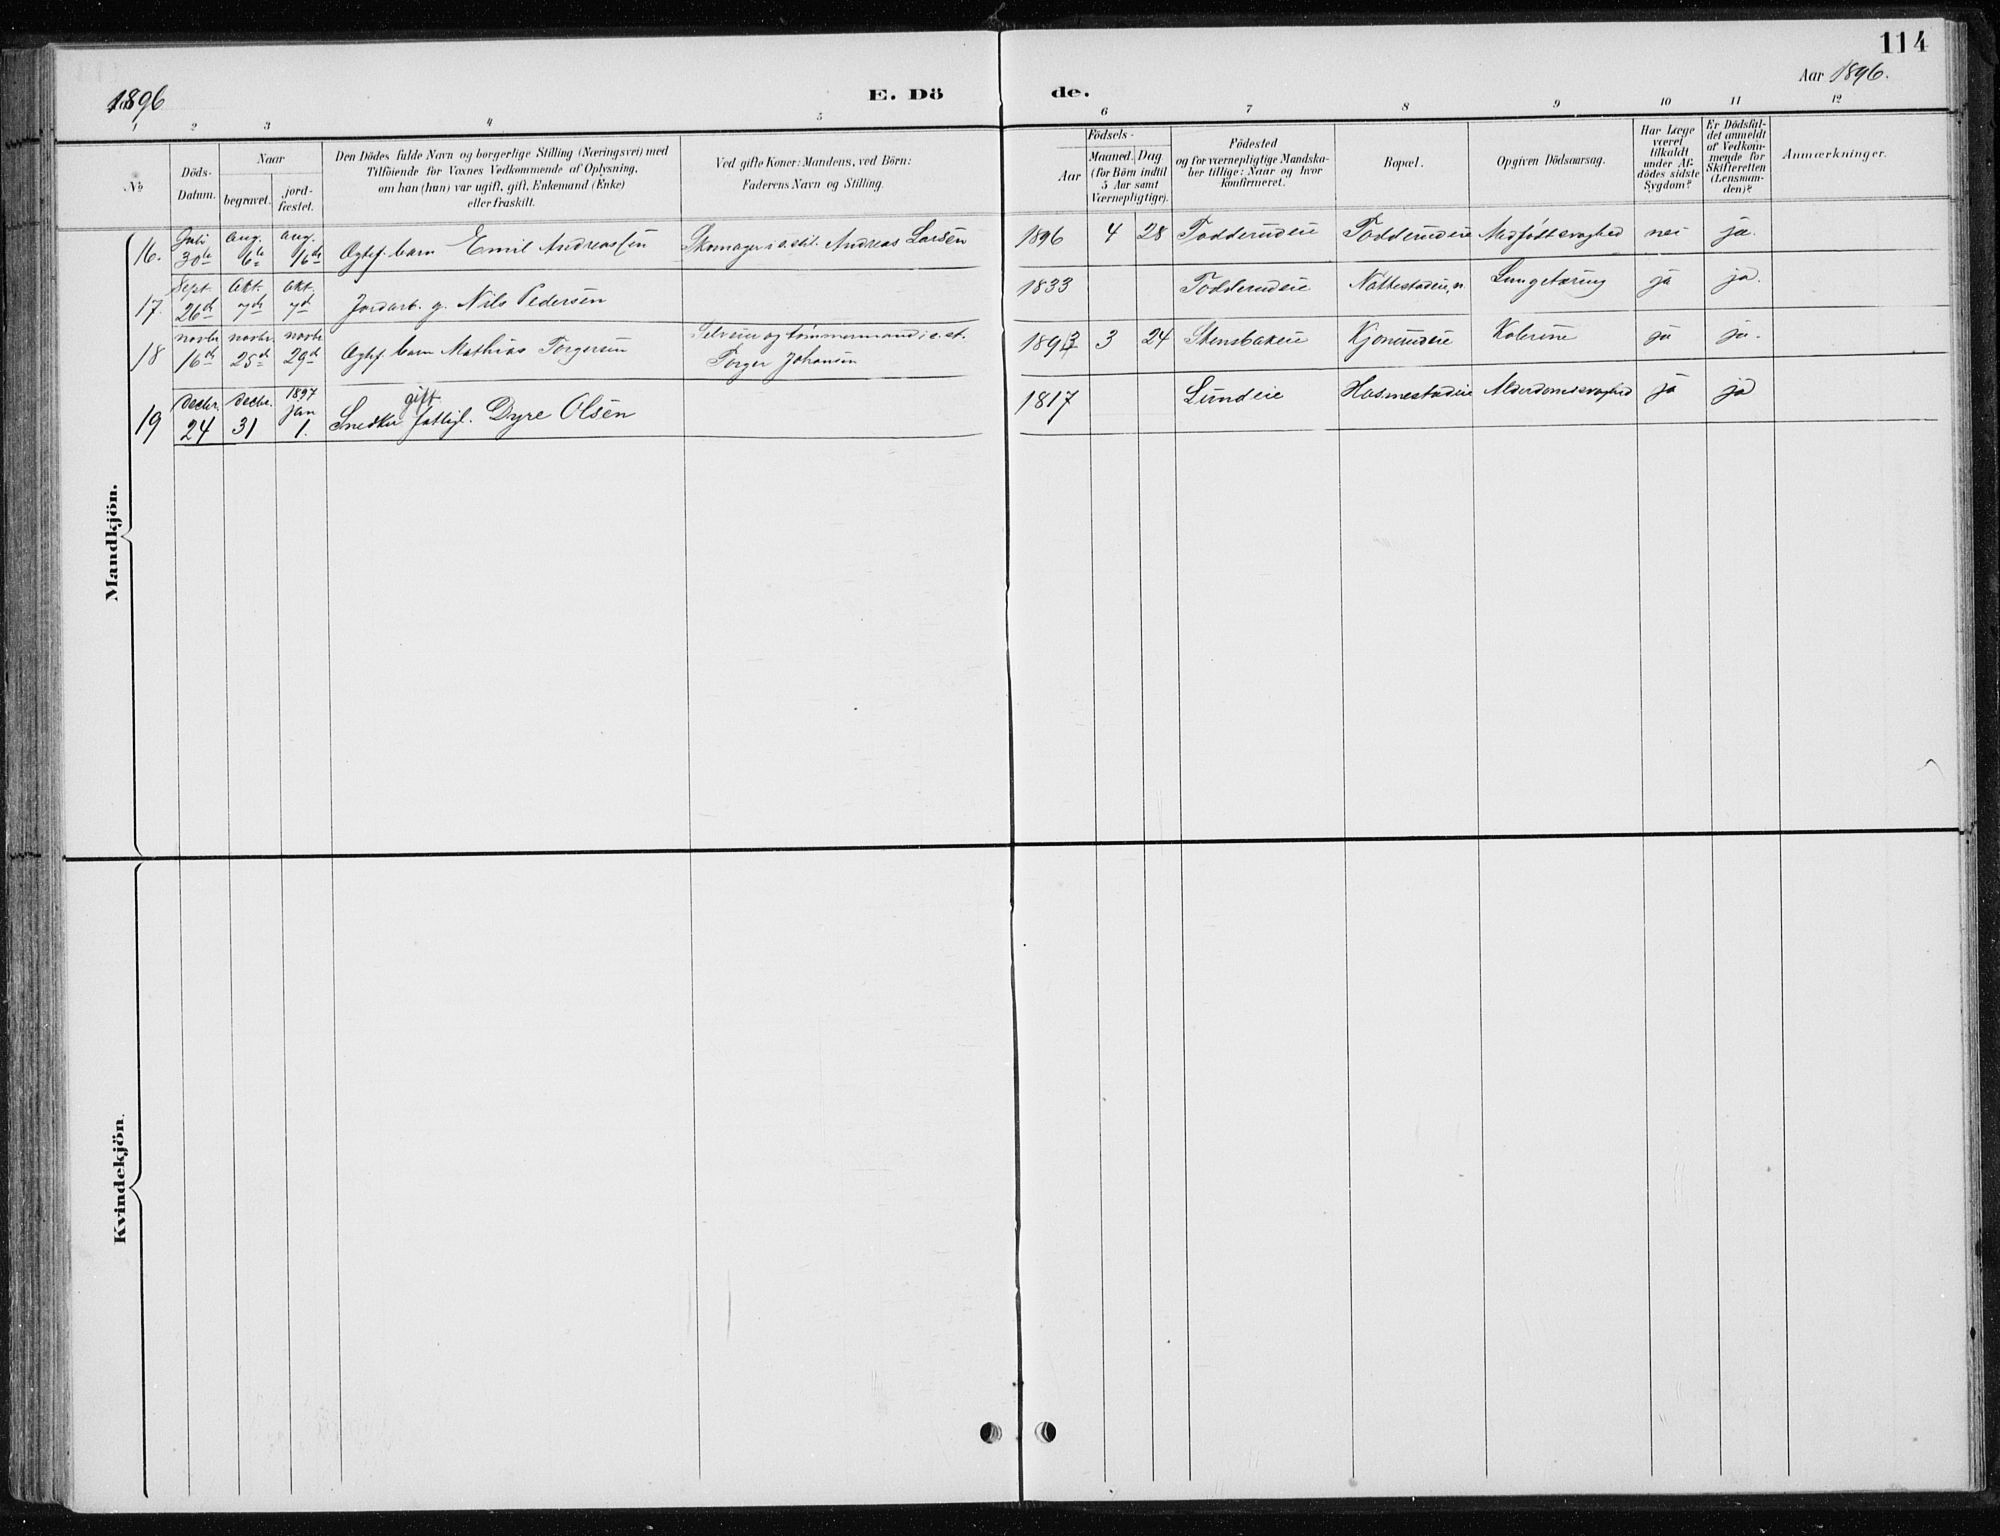 114
Aar 1896.
1896
E. Dö de.
1 2 3 4 5 6 7 8 9 10 11 12
No
Döds-
Datum.
Naar
begravet.
jord-
fæstet.
Den Dödes fulde Navn og borgerlige Stilling (Næringsvei) med
Tilföiende for Voxnes Vedkommende af Oplysning,
om han (hun) var ugift, gift, Enkemand (Enke)
eller fraskilt.
Ved gifte Koner: Mandens, ved Börn:
Faderens Navn og Stilling.
Födsels-
Aar
Maaned. Dag
(for Börn indtil
5 Aar samt
Værnepligtige).
Födested
og for værnepligtige Mandska-
ber tillige: Naar og hvor
konfirmeret.
Bopæl.
Opgiven Dödsaarsag.
Har Læge
været
tilkaldt
under Af-
dödes sidste
Sygdom?
Er Dödsfal-
det anmeldt
af Vedkom-
mende for
Skifteretten
(Lensman-
den)?
Anmærkninger.
Mandkjön.
16. Juli 30te aug. 6te aug. 16de Ægtef. barn Emil Andreassen Skomager i e. stil. Andreas Larsen 1896 4 28 Todderudeie Todderudeie Medfödt svaghed nei ja.
17. Sept. 26de Okt. 7de Okt. 7de Jordarb. g. Nils Pedersen 1833 Todderudeie Lungetæring ja ja.
18 novbr 16de novbr. 25de novbr 29de Ægtef. barn Mathias Torgersen Selveier og tömmermand i e. st.
Torger Johansen 1893 3 24 Stensbakeie Kjonerudeie Kolerine ja ja.
19 decbr. 24 decbr. 31 1897 jan 1. Snedker gift fattigl. Dyre Olsen 1817 Lundeie Alderdomssvaghed ja ja
Kvindekjön.